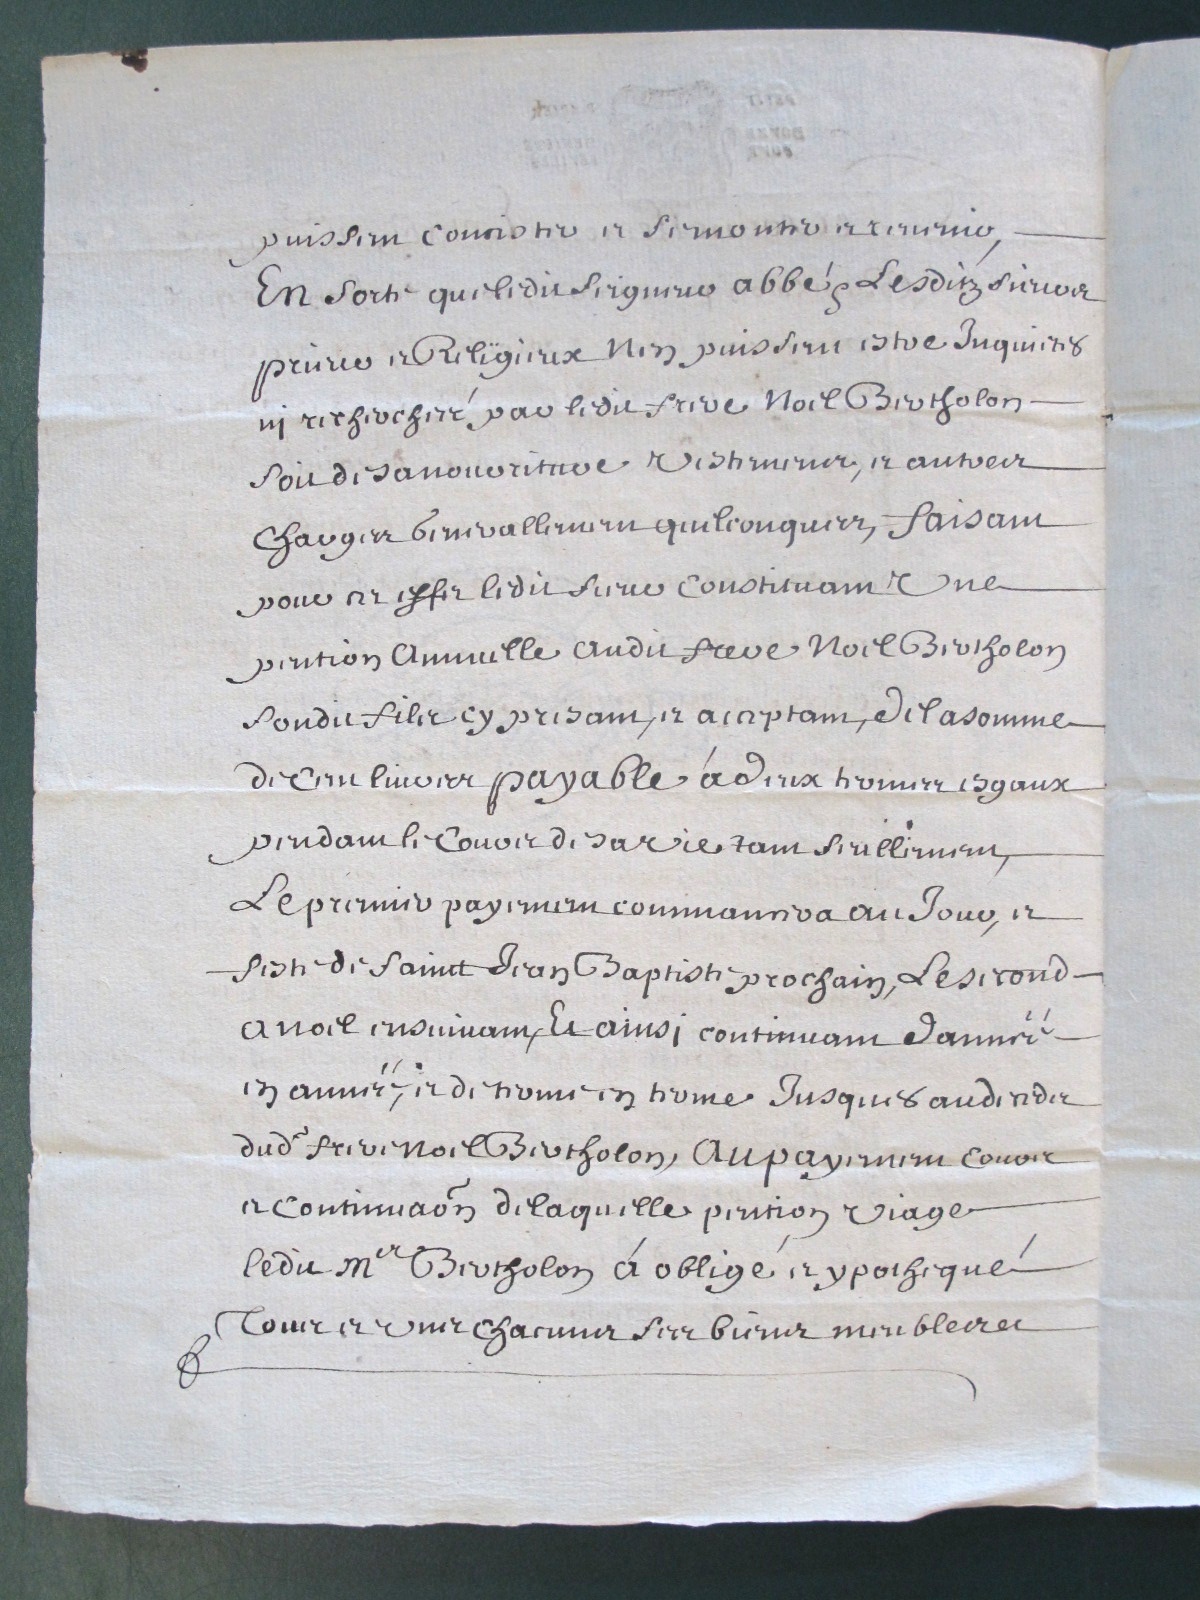 puissent consister et se monter et revenir,
En sorte que ledit seigneur abbé, Lesditz sieurs
prieur et Religieux Nen puissent estre Inquietés
nj recherchéz par ledit frere Noel Bertholon
soit de sa nourriture Vestement, et autres
charges generallement quelconques, faisant
pour cet effet ledit sieur constituant Une
pention Annuelle audit frere Noel Bertholon
sondit fils cy presant, et acceptant, de la somme
de Cent livres payable á deux termes esgaux
pendant le Cours de sa vie tant seullement,
Le premier payement commancera au Jour, et
feste de sainct Jean Baptiste prochain, Le second
a noel ensuivant, Et ainsj continuant d'année
en année, et de terme en terme Jusques au decedz
dud.t frere Noel Bertholon, Au payement Cours
et Continuaõn de laquelle pention viage
ledit Mer Bertholon á obligé et ypothequé
Tous et uns chacuns ses biens meubles et